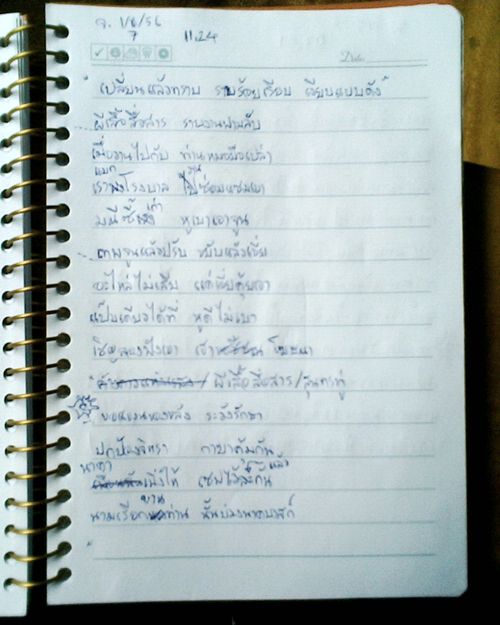 จ. 1/6/56
7 11.24
Date
" เปลี่ยนแล้วทราบ ราบร้อยเรียบ เรียบแบบดัง "
ผีเสื้อสื่อสาร รายงานผ่านลับ
เมื่อวานไปกับ ท่านหมอมือเปล่า
แบก วาน
เราพังโรงบาล ไปซ่อมแซมเอา
มนีซี้เก่า หูเบาเอาจูน
เทพจูนแล้วปรับ ขยับแล้วเขี่ย
อะไหล่ไม่เสีย แค่เขี่ยคุ้ยเอา
แป๊บเดียวได้ที่ หูดีไม่เบา
เชิญลองฟังเอา เจ้า โฆษณา
/ ผีเสื้อสื่อสาร/สุนทรทู่
ขอบคุณของขลัง ระวังรักษา
ปกป้องจิตรา กายาคุ้มกัน
นาคา แล้ว
นิ่งให้ เซฟไว้
ขาน
นามเรียก ท่าน นั้นบ่วงนาคบาสก์